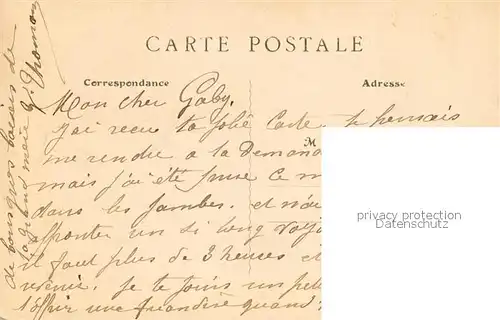 CARTE POSTALE
Correspondance
Adresse
Mon cher Gaby,
j'ai reçu ta jolie Carte, je pensais
me rendre a la Demand
M
mais j'ai été prise ce m
dans les jambes. et
un si long voya
il faut plus de 3 heures et
revenir. je te joins un pet
t'offrir une friandise quand
de bonnes baisers de
ta grand mère G. Thomas
privacy protection
Datenschutz